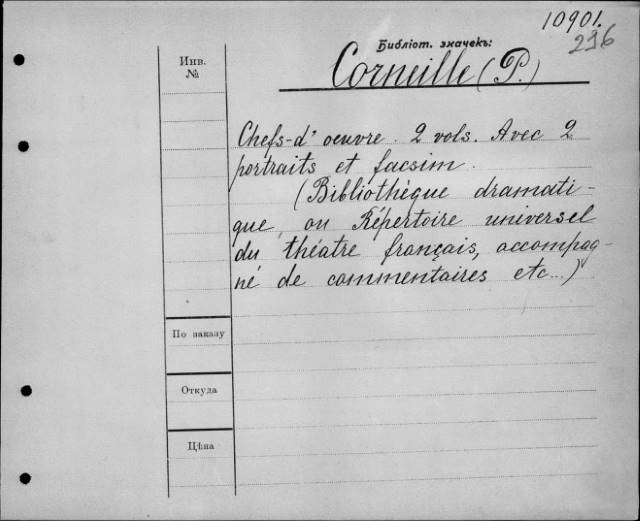 10901.
296
Библіот. значекъ:
Corneille (P.)
Инв.
№
Chefs-d' oeuvre. 2 vols. Avec 2
portraits et facsim.
(Bibliothèque dramati-
que, ou Répertoire universel
du théatre français, accompag-
né de commentaires etc...)
По заказу
Откуда
Цѣна